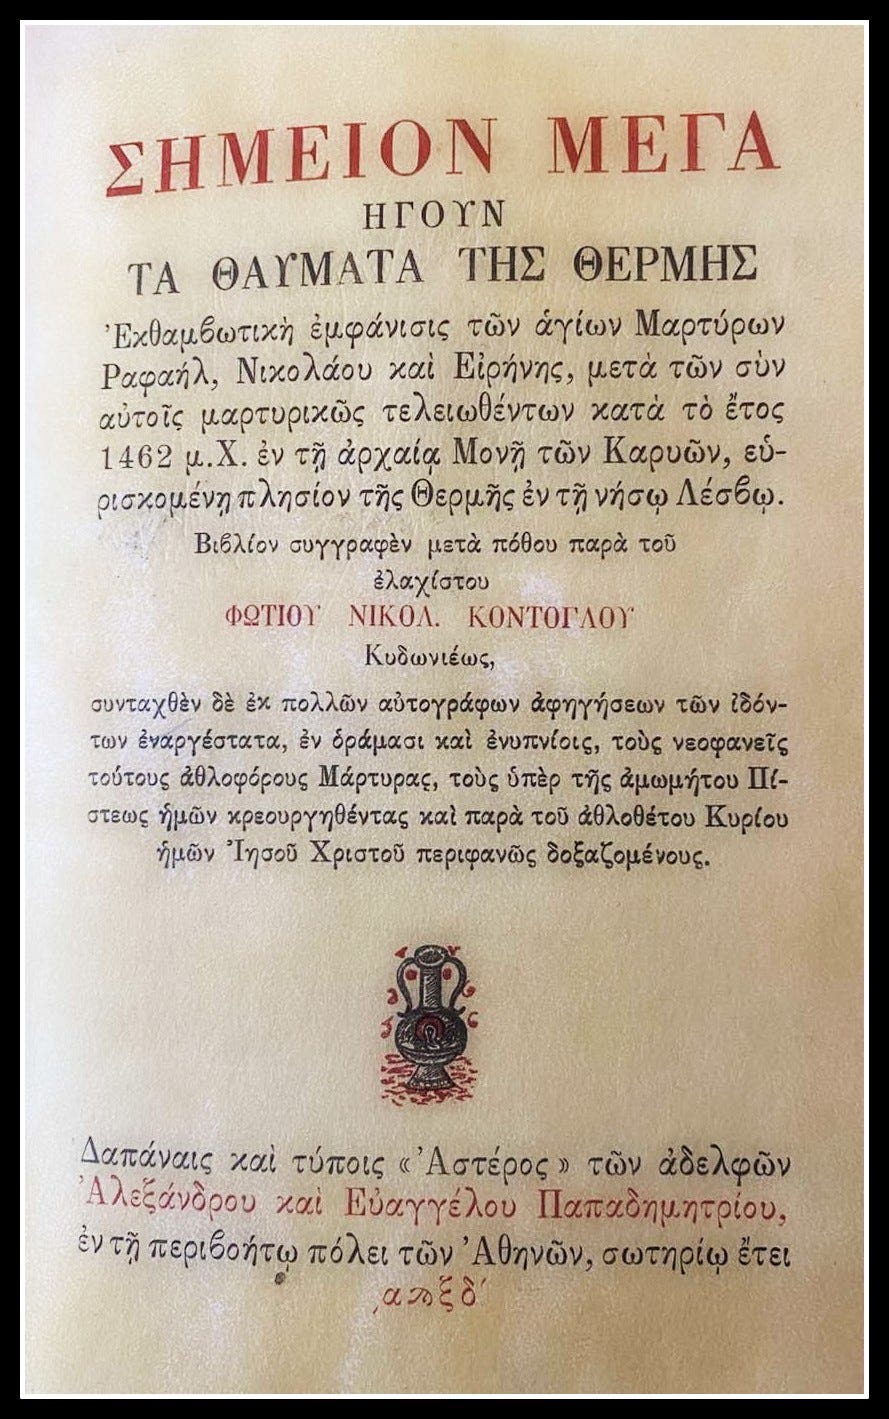 ΣΗΜΕΙΟΝ ΜΕΓΑ
ΗΓΟΥΝ
ΤΑ ΘΑΥΜΑΤΑ ΤΗΣ ΘΕΡΜΗΣ
Ἐκθαμβωτικὴ ἐμφάνισις τῶν ἁγίων Μαρτύρων
Ραφαήλ, Νικολάου καὶ Εἰρήνης, μετὰ τῶν σὺν
αὐτοῖς μαρτυρικῶς τελειωθέντων κατὰ τὸ ἔτος
1462 μ.Χ. ἐν τῇ ἀρχαίᾳ Μονῇ τῶν Καρυῶν, εὑ-
ρισκομένῃ πλησίον τῆς Θερμῆς ἐν τῇ νήσῳ Λέσβῳ.
Βιβλίον συγγραφὲν μετὰ πόθου παρὰ τοῦ
ἐλαχίστου
ΦΩΤΙΟΥ ΝΙΚΟΛ. ΚΟΝΤΟΓΛΟΥ
Κυδωνιέως,
συνταχθὲν δὲ ἐκ πολλῶν αὐτογράφων ἀφηγήσεων τῶν ἰδόν-
των ἐναργέστατα, ἐν ὁράμασι καὶ ἐνυπνίοις, τοὺς νεοφανεῖς
τούτους ἀθλοφόρους Μάρτυρας, τοὺς ὑπὲρ τῆς ἀμωμήτου Πί-
στεως ἡμῶν κρεουργηθέντας καὶ παρὰ τοῦ ἀθλοθέτου Κυρίου
ἡμῶν Ἰησοῦ Χριστοῦ περιφανῶς δοξαζομένους.
Δαπάναις καὶ τύποις «Ἀστέρος» τῶν ἀδελφῶν
Ἀλεξάνδρου καὶ Εὐαγγέλου Παπαδημητρίου,
ἐν τῇ περιβοήτῳ πόλει τῶν Ἀθηνῶν, σωτηρίῳ ἔτει
͵αϡξδʹ